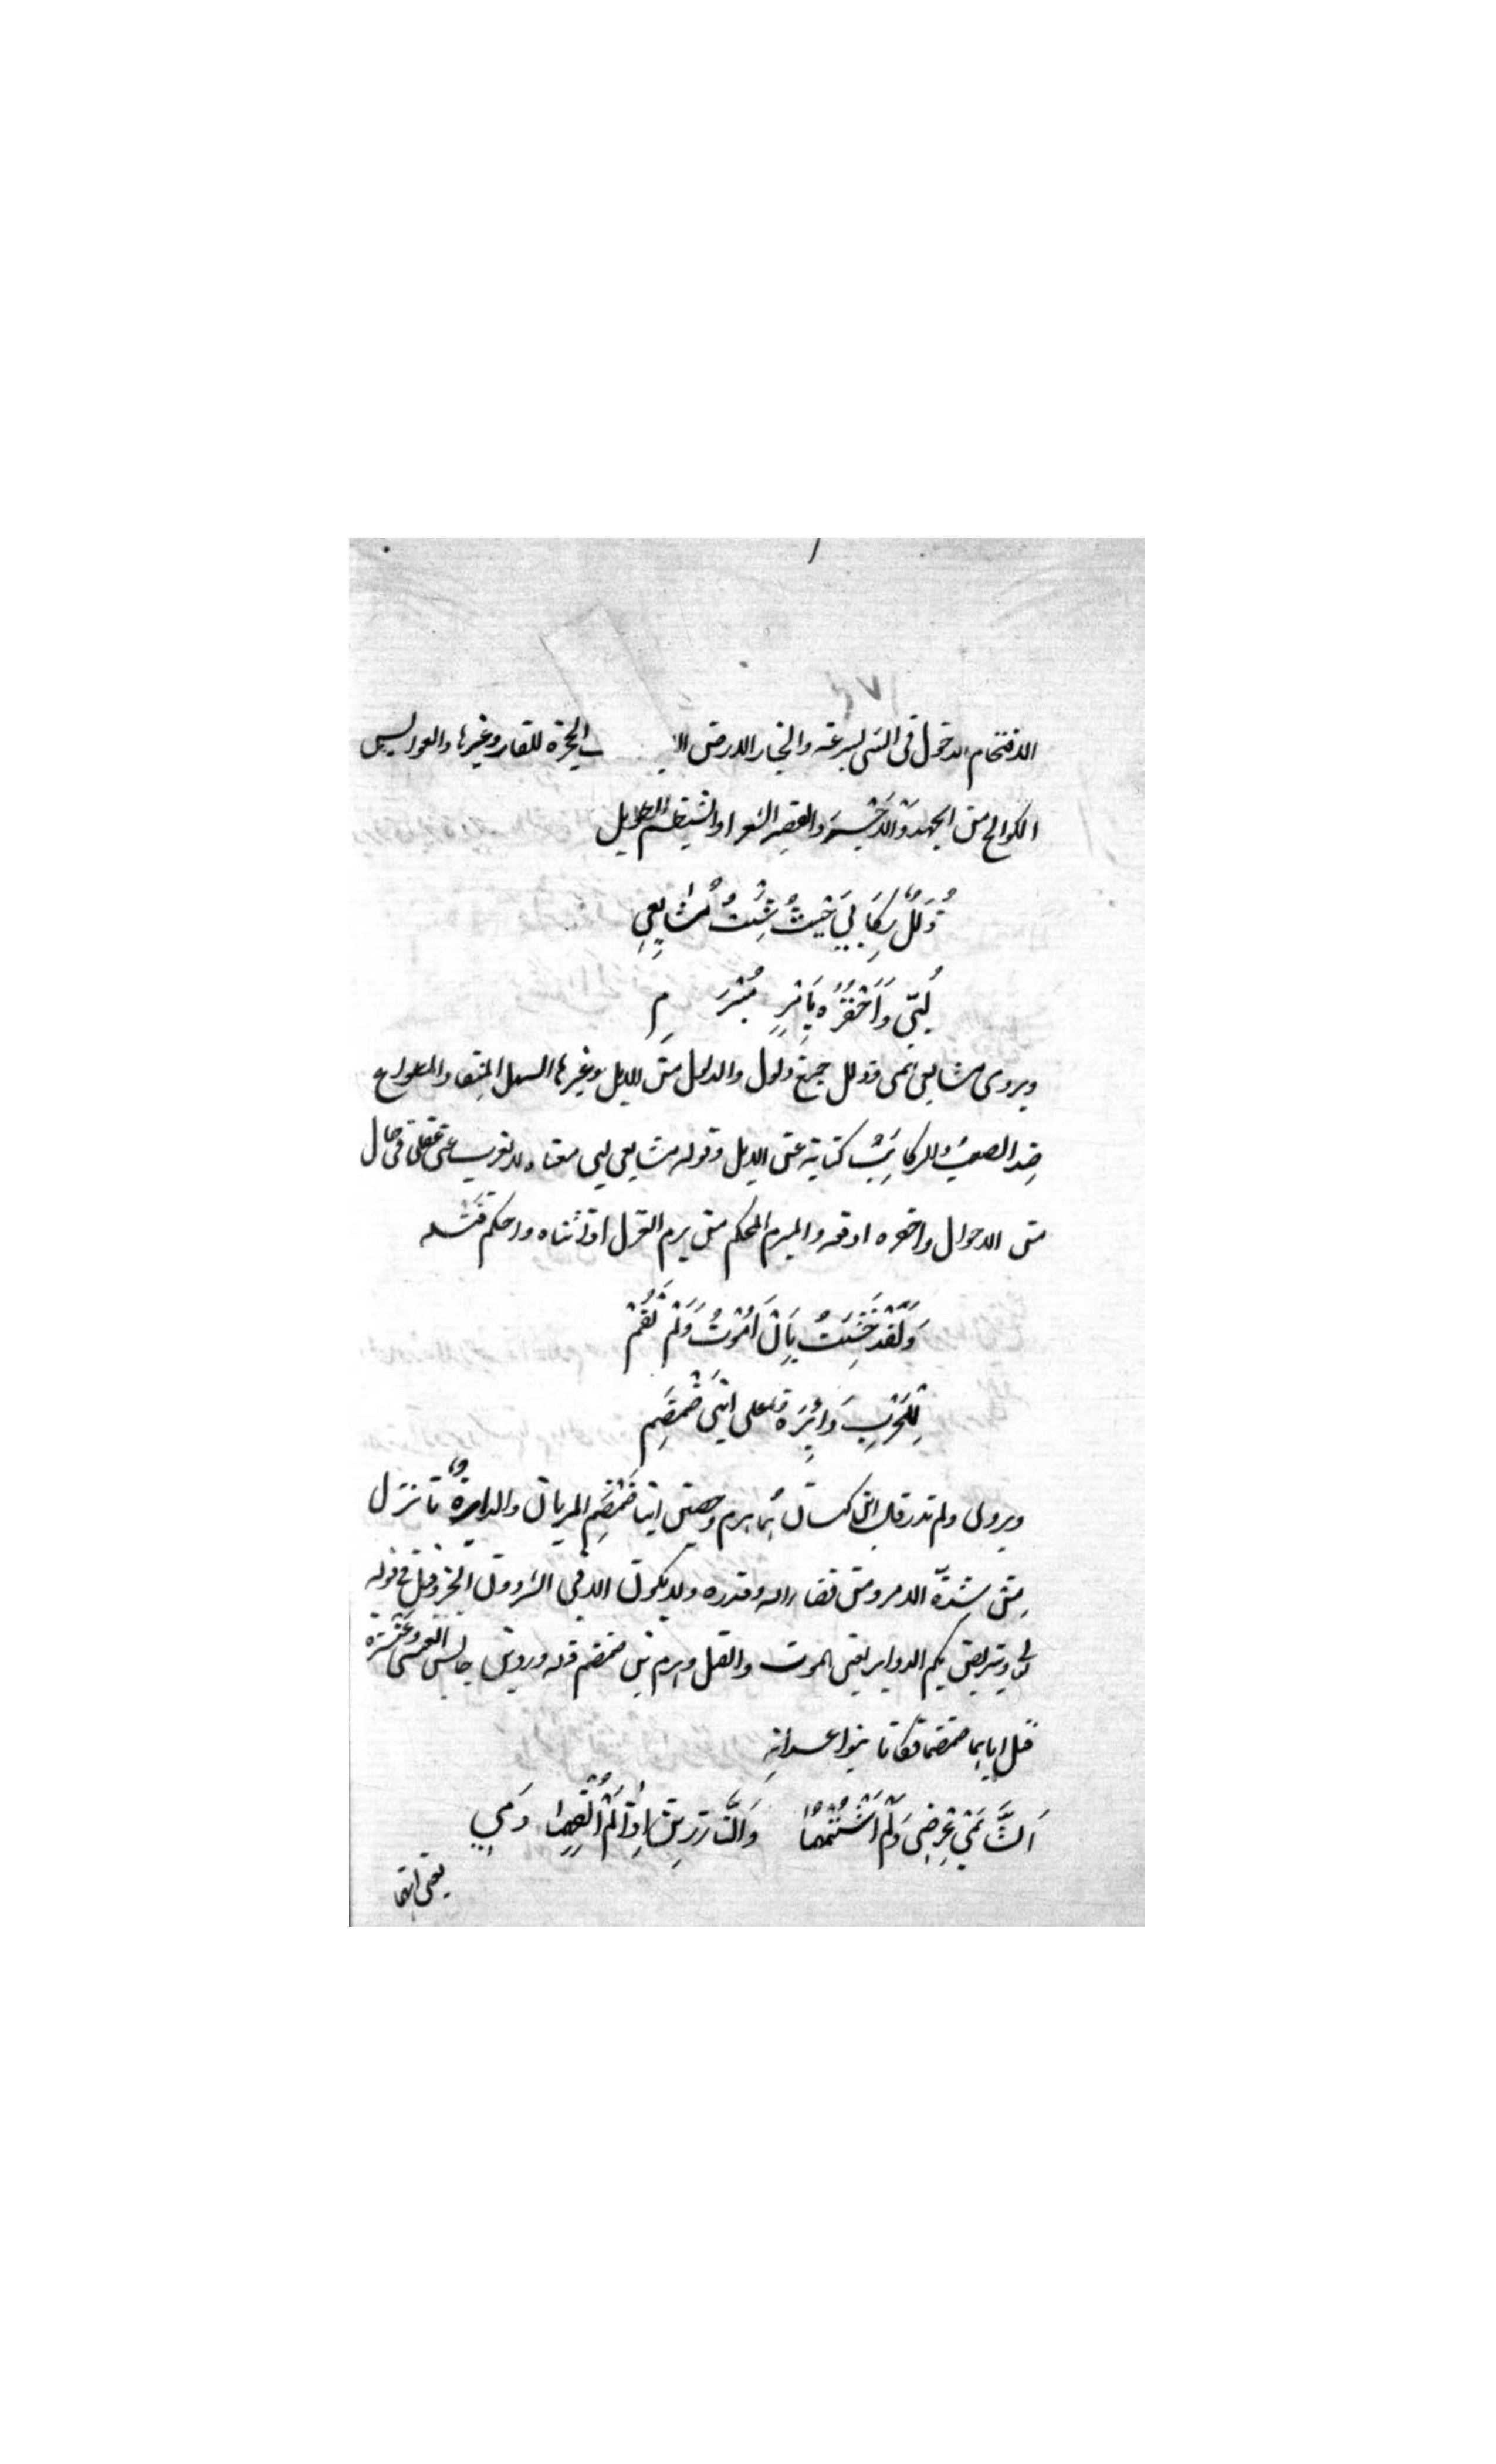 الاقتحام الدخول فى الشى بسرعة والخبار الارض الحفرة للفار وغيرها والعوابس
الكوالح من الجهد والاجرد القصير الشعر والشيظم الطويل
ذُلُلٌ رِكَابِي حَيْثُ شِئْتُ مُشَايِعِي
لُبِّي وَأَحْفِزُهُ بِأَمْرٍ مُبْرَمِ
ويروى مشايعى همى وذلل جمع ذلول والذلول من الابل وغيرها السهل المنقاد المطواع
ضد الصعب والركائب كناية عن الابل وقوله مشايعى لبى معناه لا يغرب عنى عقلى فى حال
من الاحوال واحفزه ادفعه والمبرم المحكم من برم الغزل اذا ثناه واحكم فتله
وَلَقَدْ خَشِيتُ بِأَنْ أَمُوتَ وَلَمْ تَقُمْ
لِلْحَرْبِ دَائِرَةٌ عَلَى ابْنَيْ ضَمْضَمِ
ويروى ولم تدر قال ابن هما هرم وحصين ابنا ضمضم المريان والدائرة ما ينزل
من شدة الامر ومن قضا الله وقدره ولا يكون الا فى الشر دون الخير وقيل فى قوله
ويتربص بكم الدواير يعنى الموت والقتل وهرم بن ضمضم قتله ورد بن حابس العبسى وعنترة
قتل اباهما ضمضما فكانا يتواعدانه
اَلشَّاتِمَيْ عِرْضِي وَلَمْ أَشْتُمْهُمَا وَالنَّاذِرَيْنِ إِذَا لَمْ أَلْقَهُمَا دَمِي
يعنى انهما